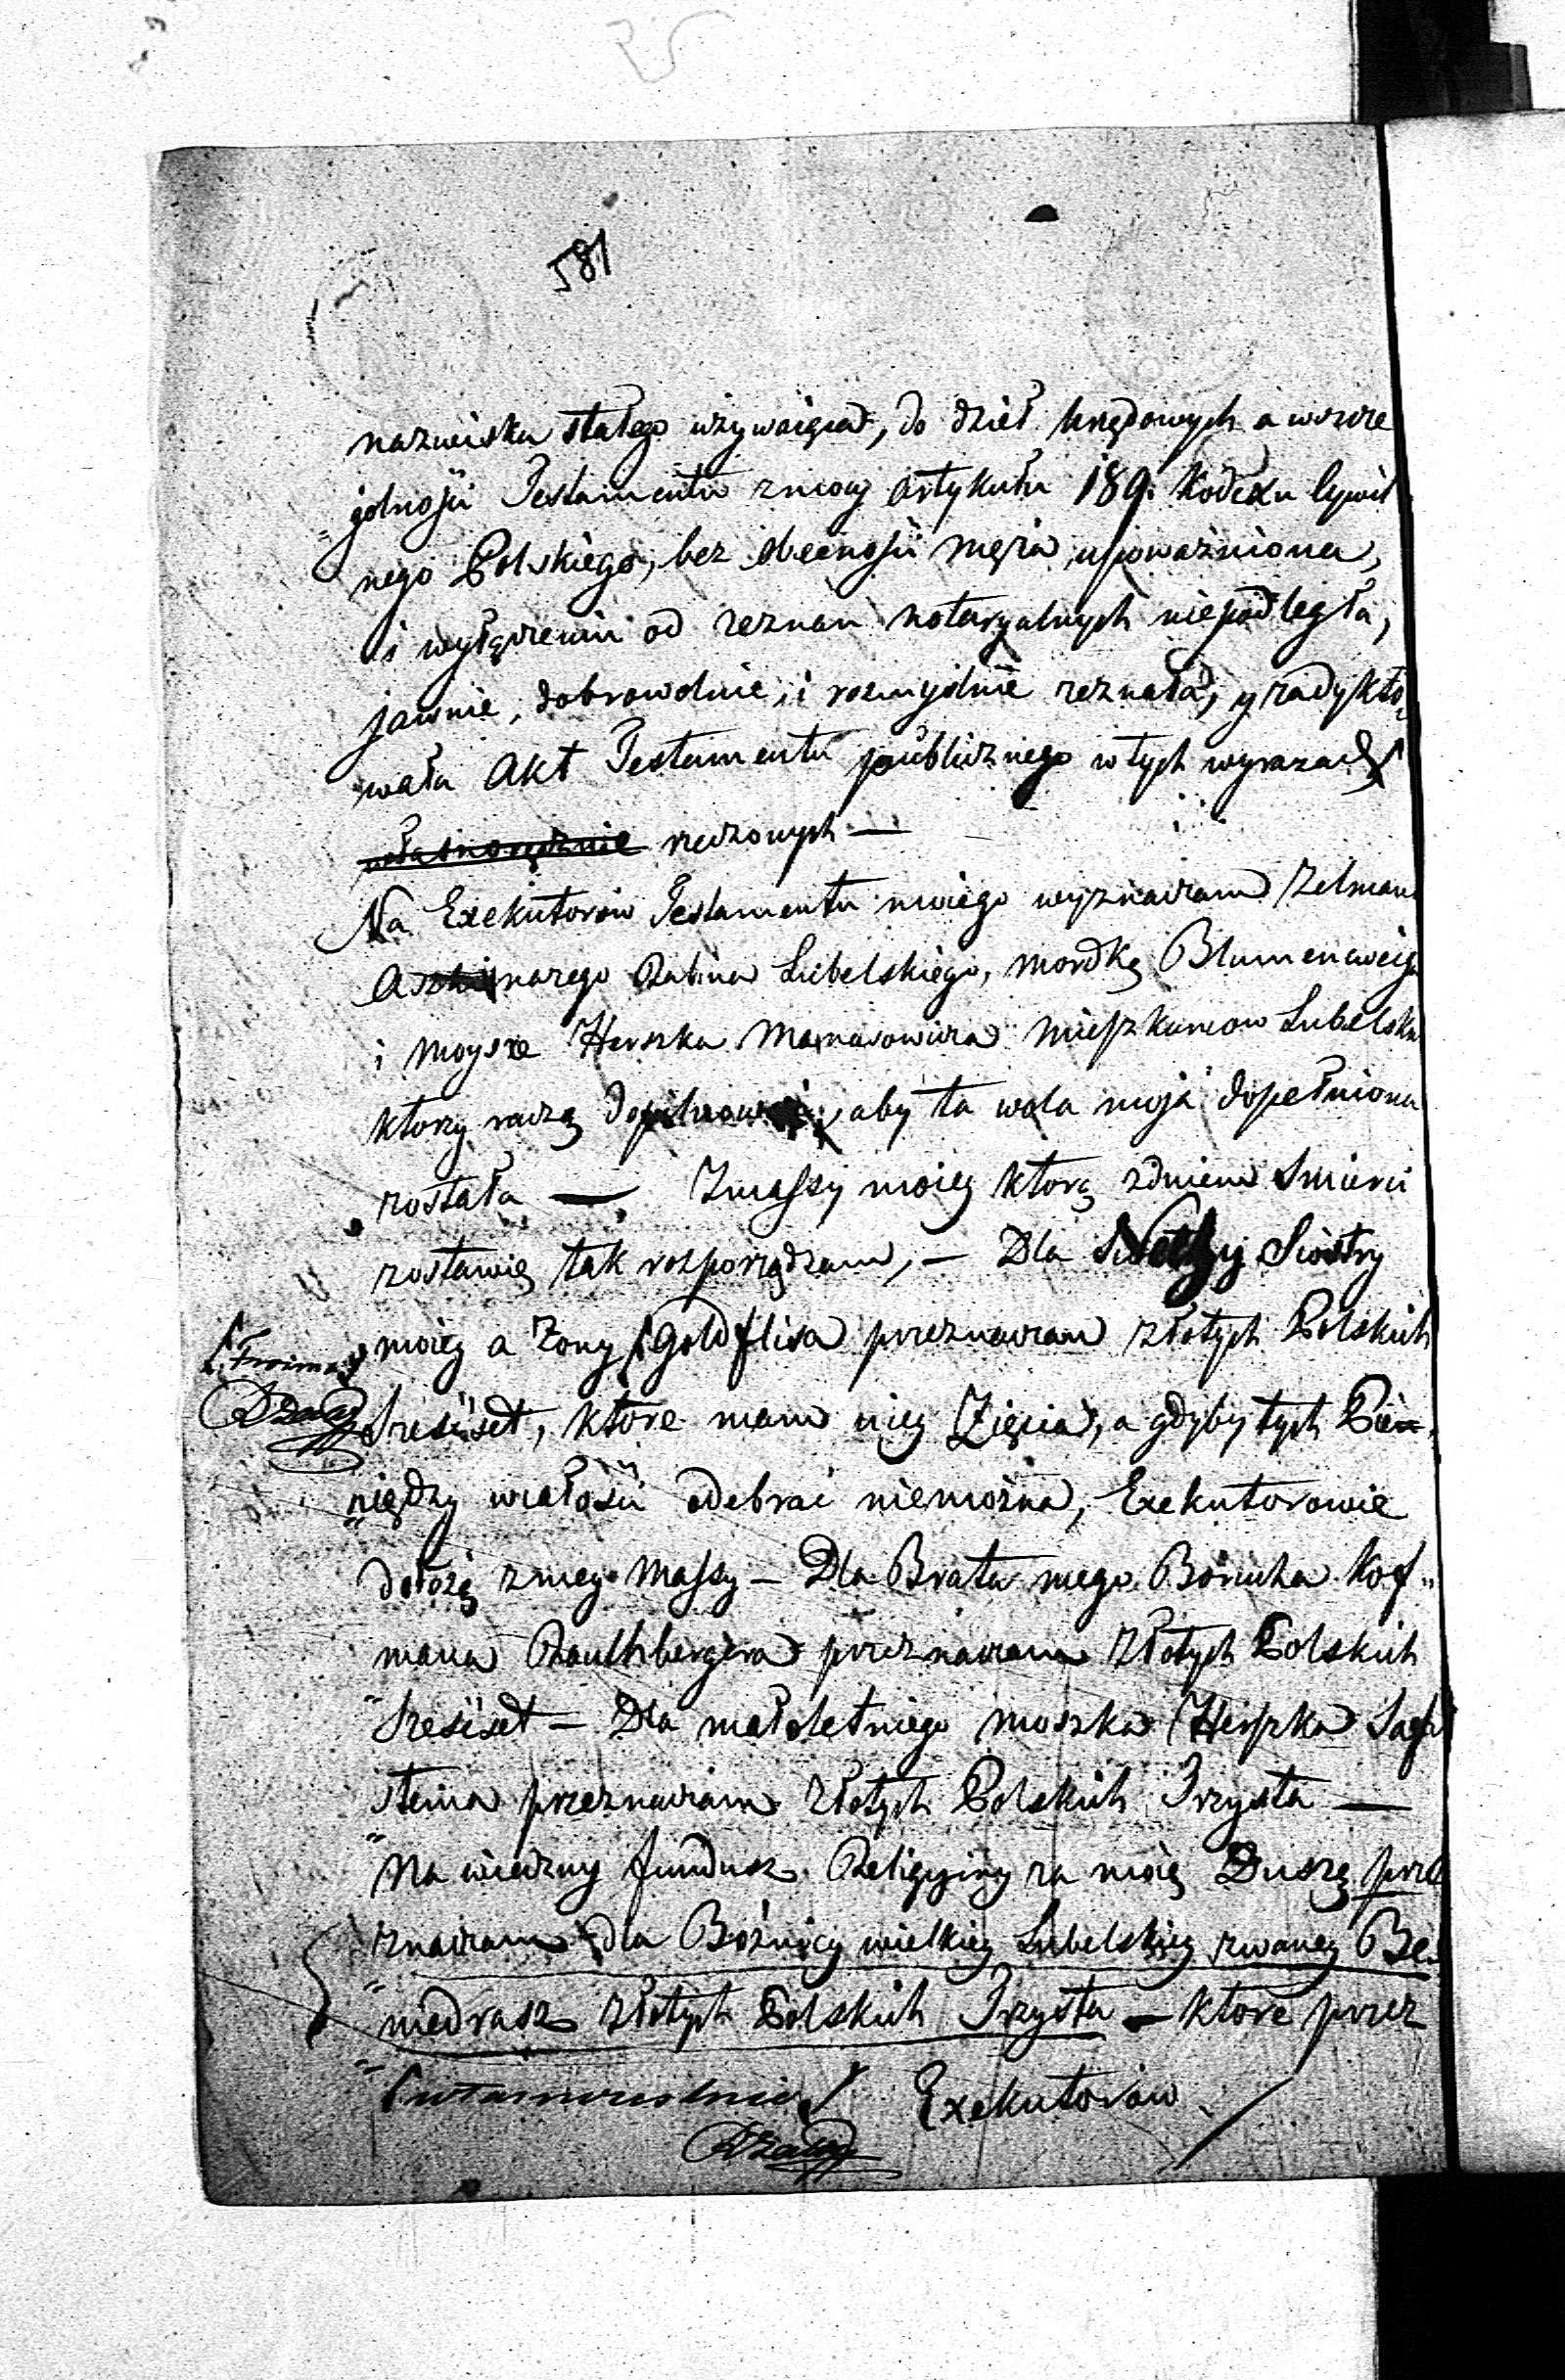 581
nazwiska stałego używaiąca, do dzieł urzędowych a wszcze
gólnosci Testamentu zmocy Artykułu 189. Kodexu Cywil
nego Polskiego, bez obecnosci męża upoważniona,
i wyłączeniu od zeznan notaryalnych niepodległa,
jawnie, dobrowolnie, i rozmyslnie zeznała, y zadykto
wała Akt Testamentu publicznego w tych wyrazach
własnoręcznie rzeczonych —
Na Exekutorow Testamentu moiego wyznaczam Zelmana
nazego Rabina Lubelskiego, Mordkę Blumencweiga
i Moysze Herszka Manasowicza Mieszkancow Lubelskich
ktorzy raczą dopilnować, aby ta wola moja dopełniona
została — Zmassy moiey ktorą zdniem Smierci
zostawię tak rozporządzam, — Dla Siostry
moiey a Zony Goldflisa przeznaczam złotych Polskich
Froima
Szesćset, ktore mam u iey Zięcia, a gdyby tych Pie
niędzy wcałosci odebrać niemożna, Exekutorowie
dołożą zmey Massy — Dla Brata mego Borucha Kof
mana Rauchbergera przeznaczam Złotych Polskich
Szesćset — Dla małoletniego Moszka Herszka Saf
steina przeznaczam Złotych Polskich Trzysta —
Na wieczny fundusz Religyiny za moię Duszę prze
znaczam dla Bóżnicy wielkiey Lubelskiey zwaney Be
medrasz Złotych Polskich Trzysta — ktore przez
Exekutorow